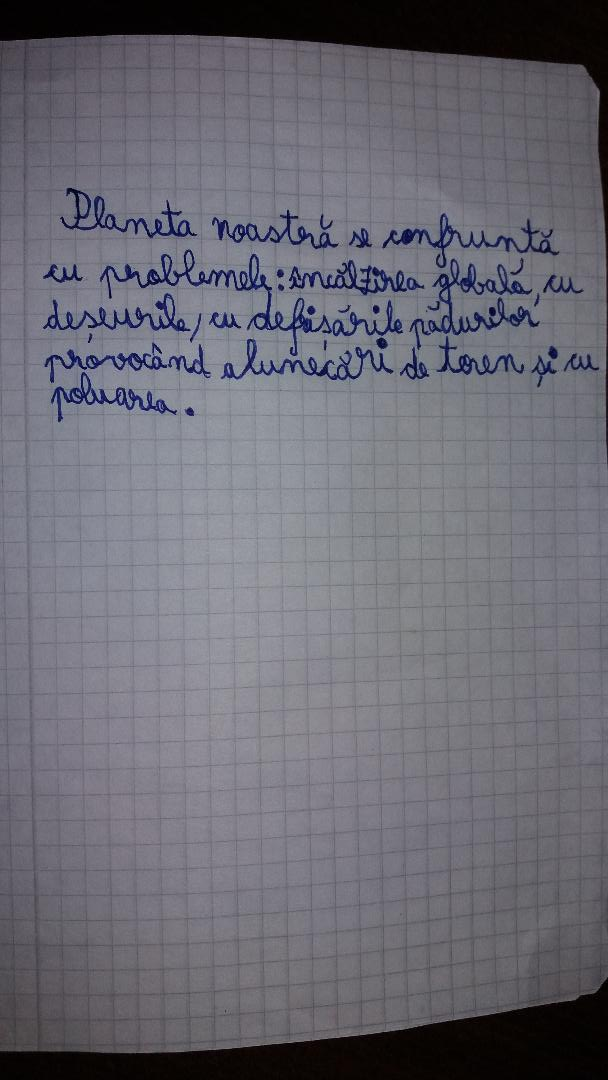 Planeta noasteră se confruntă
cu problemele: încălzirea globală, cu
deșeurile, cu defișările pădurilor
provocând alunecări de teren și cu
poluarea.